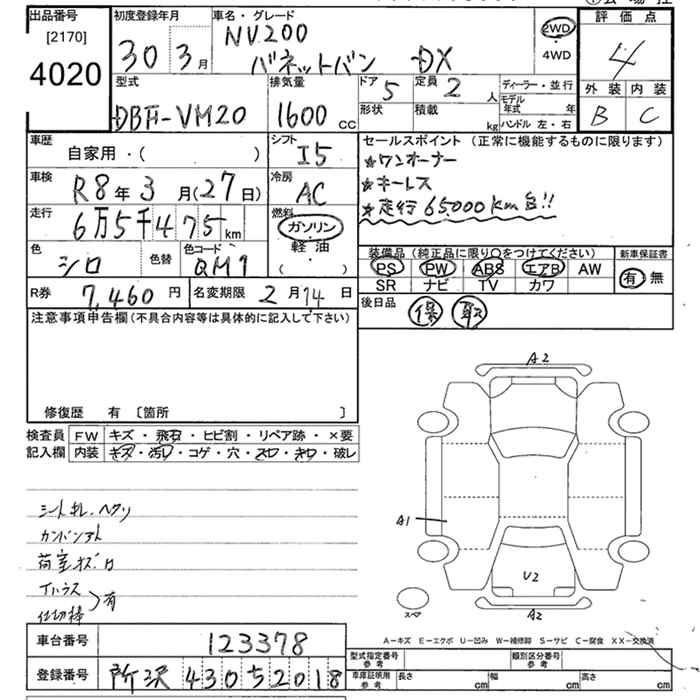 出品番号
[2170]
4020
初度登録年月
30 3月
車名・グレード
NV200
バネットバン DX
2WD
・
4WD
評価点
4
外装 内装
B C
型式
DBF-VM20
排気量
1600 cc
ドア 5
形状
定員 2 人
積載 kg
ディーラー・並行
モデル年式 年
ハンドル 左・右
車歴
自家用・( )
シフト
I5
セールスポイント (正常に機能するものに限ります)
★ワンオーナー
★キーレス
★走行65000km台!!
車検
R8年3月(27日)
冷房
AC
走行
6万5千475km
燃料
ガソリン
軽油
・
( )
色
シロ
色替
色コード
QM1
装備品 (純正品に限り○をつけてください)
PS PW ABS エアB AW
SR ナビ TV カワ
新車保証書
有 無
R券 7,460円
名変期限 2月14日
後日品
保 取
注意事項申告欄(不具合内容等は具体的に記入して下さい)
修復歴 有 〔箇所 〕
検査員記入欄
FW キズ・飛石・ヒビ割・リペア跡・×要
内装 キズ・汚レ・コゲ・穴・スレ・キレ・破レ
シートキレ・ヘタリ
荷室キズ
有
A2
A1
U2
スペア
A2
A-キズ E-エクボ U-凹み W-補修跡 S-サビ C-腐食 XX-交換済
車台番号 123378
登録番号 所沢 430 5 2018
型式指定番号 参考
類別区分番号 参考
車庫証明用 参考
長さ cm 幅 cm 高さ cm